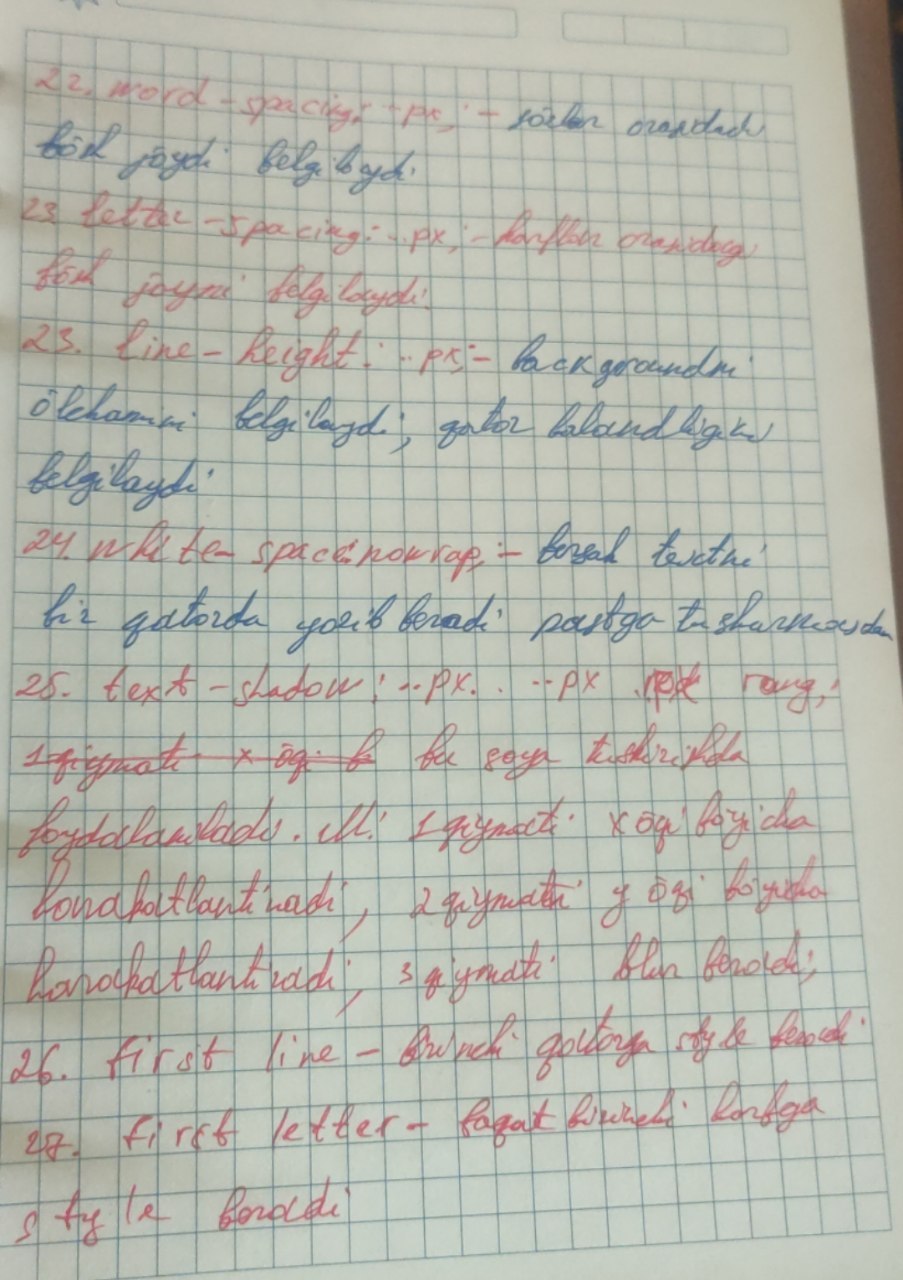 22. word-spacing: ..px; - sözlar orasidadi
bösh jöydi belgilaydi.
23 letter-spacing: ..px; - harflar orasidagi
bösh jöyni belgilaydi.
23. line-height: ..px; - backgroundni
ölchamini belgilaydi, qator balandligini
belgilaydi
24. white-space: nowrap; - barsah textni
bir qatorda yozib beradi pastga tusharmasdan
25. text-shadow: ..px. . ..px rang;
1 qiymati x öqi b bu soya tushirishda
foydalaniladi. M: 1 qiymati x öqi böyicha
harakatlantiradi, 2 qiymati y öqi böyicha
harakatlantiradi, 3 qiymati blur beradi;
26. first line - birinchi qatorga style beradi
27. first letter - faqat birinchi harfga
style beradi